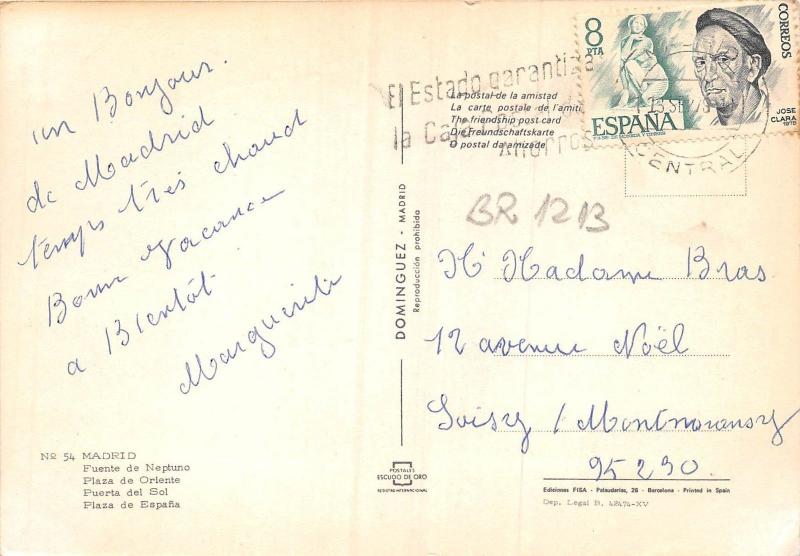 un Bonjour.
de Madrid
temps très chaud
Bonne vacance
a Bientôt
Marguerite
Nº 54 MADRID
Fuente de Neptuno
Plaza de Oriente
Puerta del Sol
Plaza de España
DOMINGUEZ - MADRID
Reproducción prohibida
POSTALES
ESCUDO DE ORO
REGISTRO INTERNACIONAL
El Estado garantiza
la Ca
Ahorros
La postal de la amistad
La carte postale de l'amitié
The friendship post card
Die Freundschaftskarte
O postal da amizade
8
PTA
CORREOS
JOSE
CLARA
1978
ESPAÑA
CENTRAL
BR 1213
Mr Madame Bras
12 avenue Noël
Soisy / Montmorency
95230.
Ediciones FISA - Palaudarias, 26 - Barcelona - Printed in Spain
Dep. Legal B. 42474-XV